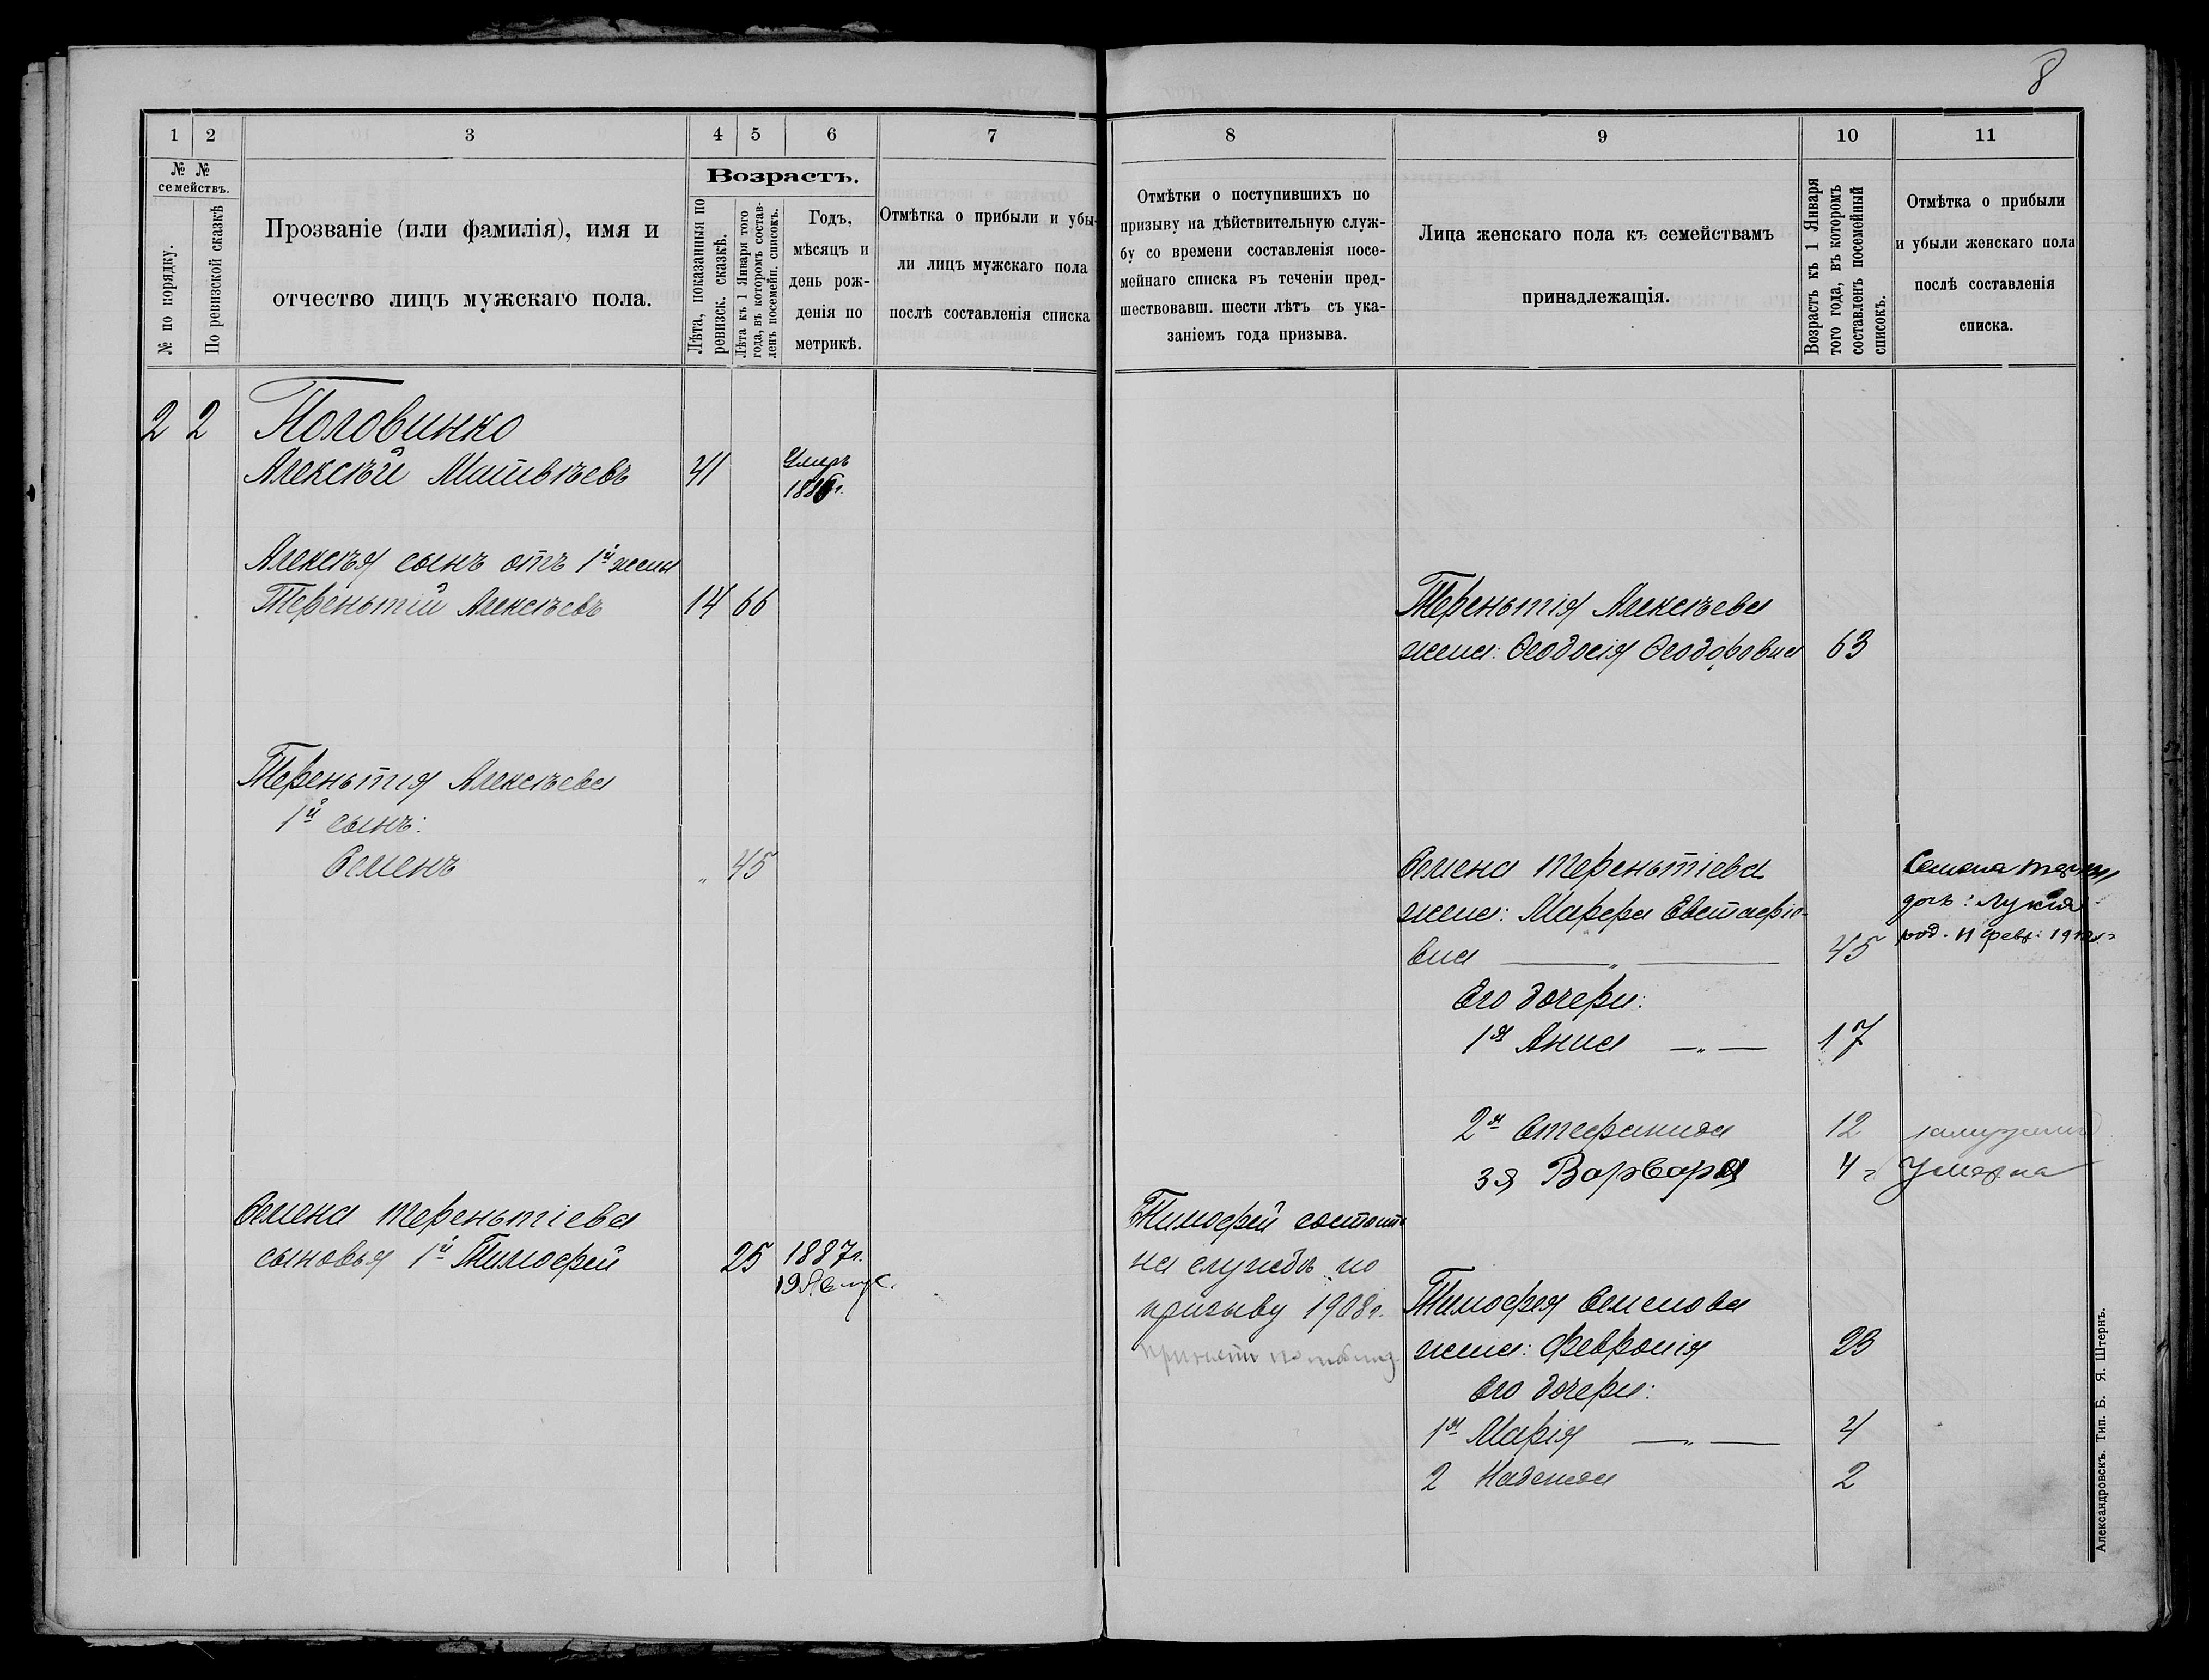 8
1 2 3 4 5 6 7
№ № семействъ.
№ по порядку.
По ревизской сказкѣ
Прозваніе (или фамилія), имя и
отчество лицъ мужскаго пола.
Возрастъ.
Лѣта, показанныя по
ревизск. сказкѣ.
Лѣта къ 1 Января того
года, въ которомъ состав-
ленъ посемейн. списокъ.
Годъ,
мѣсяцъ и
день рож-
денія по
метрикѣ.
Отмѣтка о прибыли и убы-
ли лицъ мужскаго пола
послѣ составленія списка
2 2 Половинко
Алексѣй Матвѣевъ 41 Умеръ
Алексѣя сынъ отъ 1й жены
Терентьій Алексѣевъ 14 66
Терентьія Алексѣева
1й сынъ:
Семенъ „ 45
Семена Терентьіева
сыновья 1й Тимофей 25 1887г.
8 9 10 11
Отмѣтки о поступившихъ по
призыву на дѣйствительную служ-
бу со времени составленія посе-
мейнаго списка въ теченіи пред-
шествовавш. шести лѣтъ съ ука-
заніемъ года призыва.
Лица женскаго пола къ семействамъ
принадлежащія.
Возрастъ къ 1 Января
того года, въ которомъ
составленъ посемейный
списокъ.
Отмѣтка о прибыли
и убыли женскаго пола
послѣ составленія
списка.
Терентьія Алексѣева
жена: Ѳеодосія Ѳеодоровна 63
Семена Терентьіева
жена: Марфа Евстафіе-
вна — „ — 45
Его дочери:
1я Анна — „ — 17
2я Стефанида 12
3я Варвара 4 Умерла
Семена
дочь: Лукія
род. 11 февр. 1912г.
Тимофей состоитъ
на службѣ по
призыву 1908г.
Тимофея Семенова
жена: Февронія 23
Его дочери:
1я Марія — „ — 4
2 Надежда 2
Александровскъ. Тип. Б. Я. Штернъ.